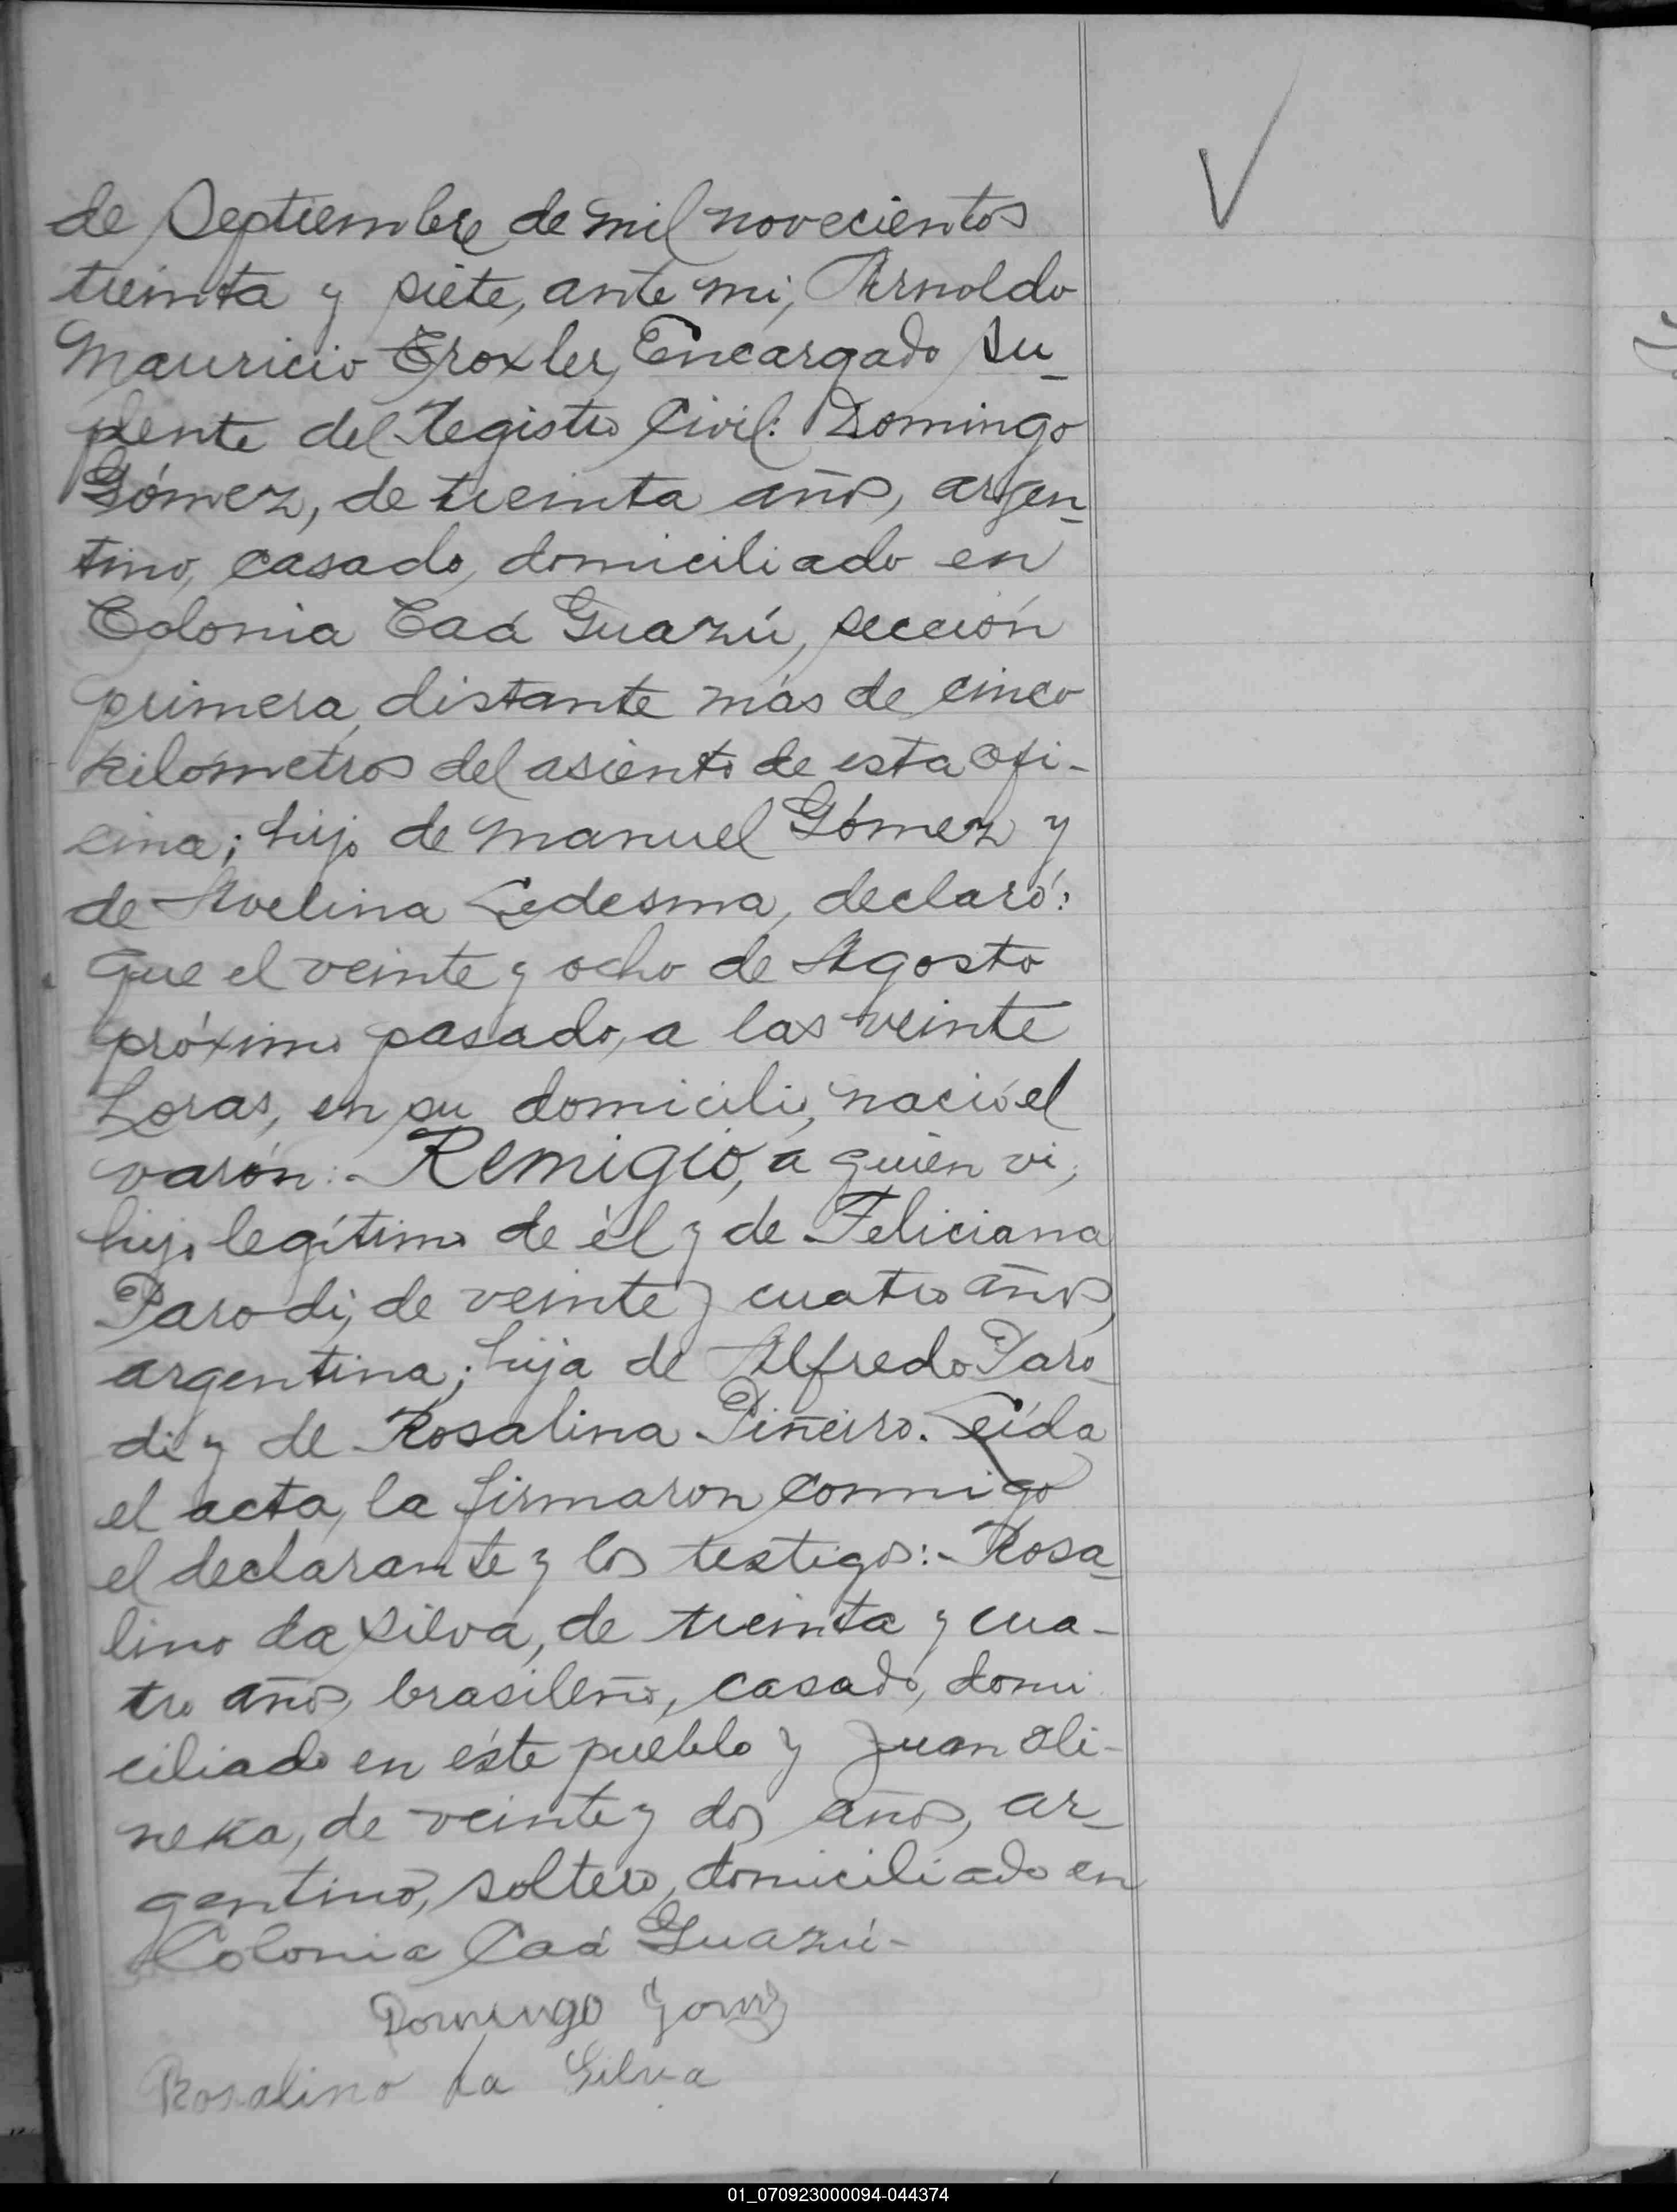 de Septiembre de mil novecientos
treinta y siete, ante mi, Arnoldo
Mauricio Troxler, Encargado Su_
plente del Registro Civil: Domingo
Gómez, de treinta años, argen_
tino, casado, domiciliado en
Colonia Caá Guazú, sección
primera, distante más de cinco
kilómetros del asiento de esta ofi-
cina; hijo de Manuel Gómez y
de Avelina Ledesma, declaró:
Que el veinte y ocho de Agosto
próximo pasado, a las veinte
horas, en su domicilio, nació el
varón:- Remigio, a quién vi,
hijo legítimo de él y de Feliciana
Parodi, de veinte y cuatro años,
argentina; hija de Alfredo Paro_
di y de Rosalina Piñeiro. Leída
el acta, la firmaron conmigo
el declarante y los testigos:- Rosa_
lino da Silva, de treinta y cua-
tro años, brasileño, casado, domi
ciliado en éste pueblo y Juan Oli-
neka, de veinte y dos años, ar_
gentino, soltero, domiciliado en
Colonia Caá Guazú-
Domingo Gomez
Rosalino da Silva
01_070923000094-044374